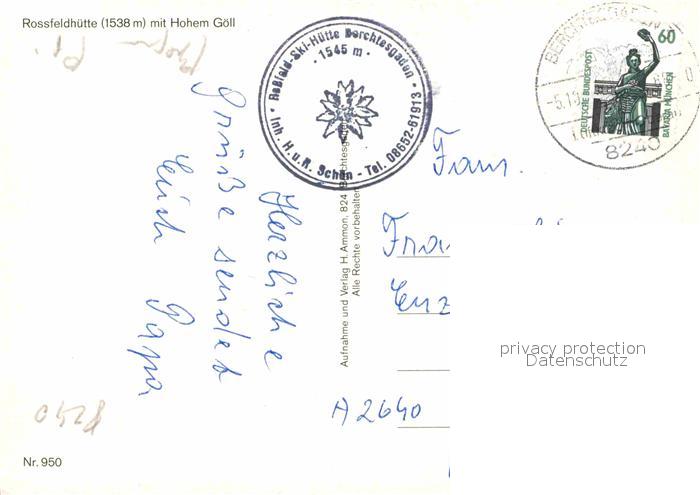 Rossfeldhütte (1538 m) mit Hohem Göll
Roßfeld-Ski-Hütte Berchtesgaden
· 1545 m ·
Inh. H.u.R. Schön - Tel. 08652-61913
BERCHTESGADEN
-5.1
8240
60
DEUTSCHE BUNDESPOST
BAVARIA MÜNCHEN
Herzliche
Grüße sendet
Euch Papa
Aufnahme und Verlag H. Ammon, 824 Berchtesgaden
Alle Rechte vorbehalten
Fam.
Fra
Enz
A 2640
privacy protection
Datenschutz
8240
Nr. 950